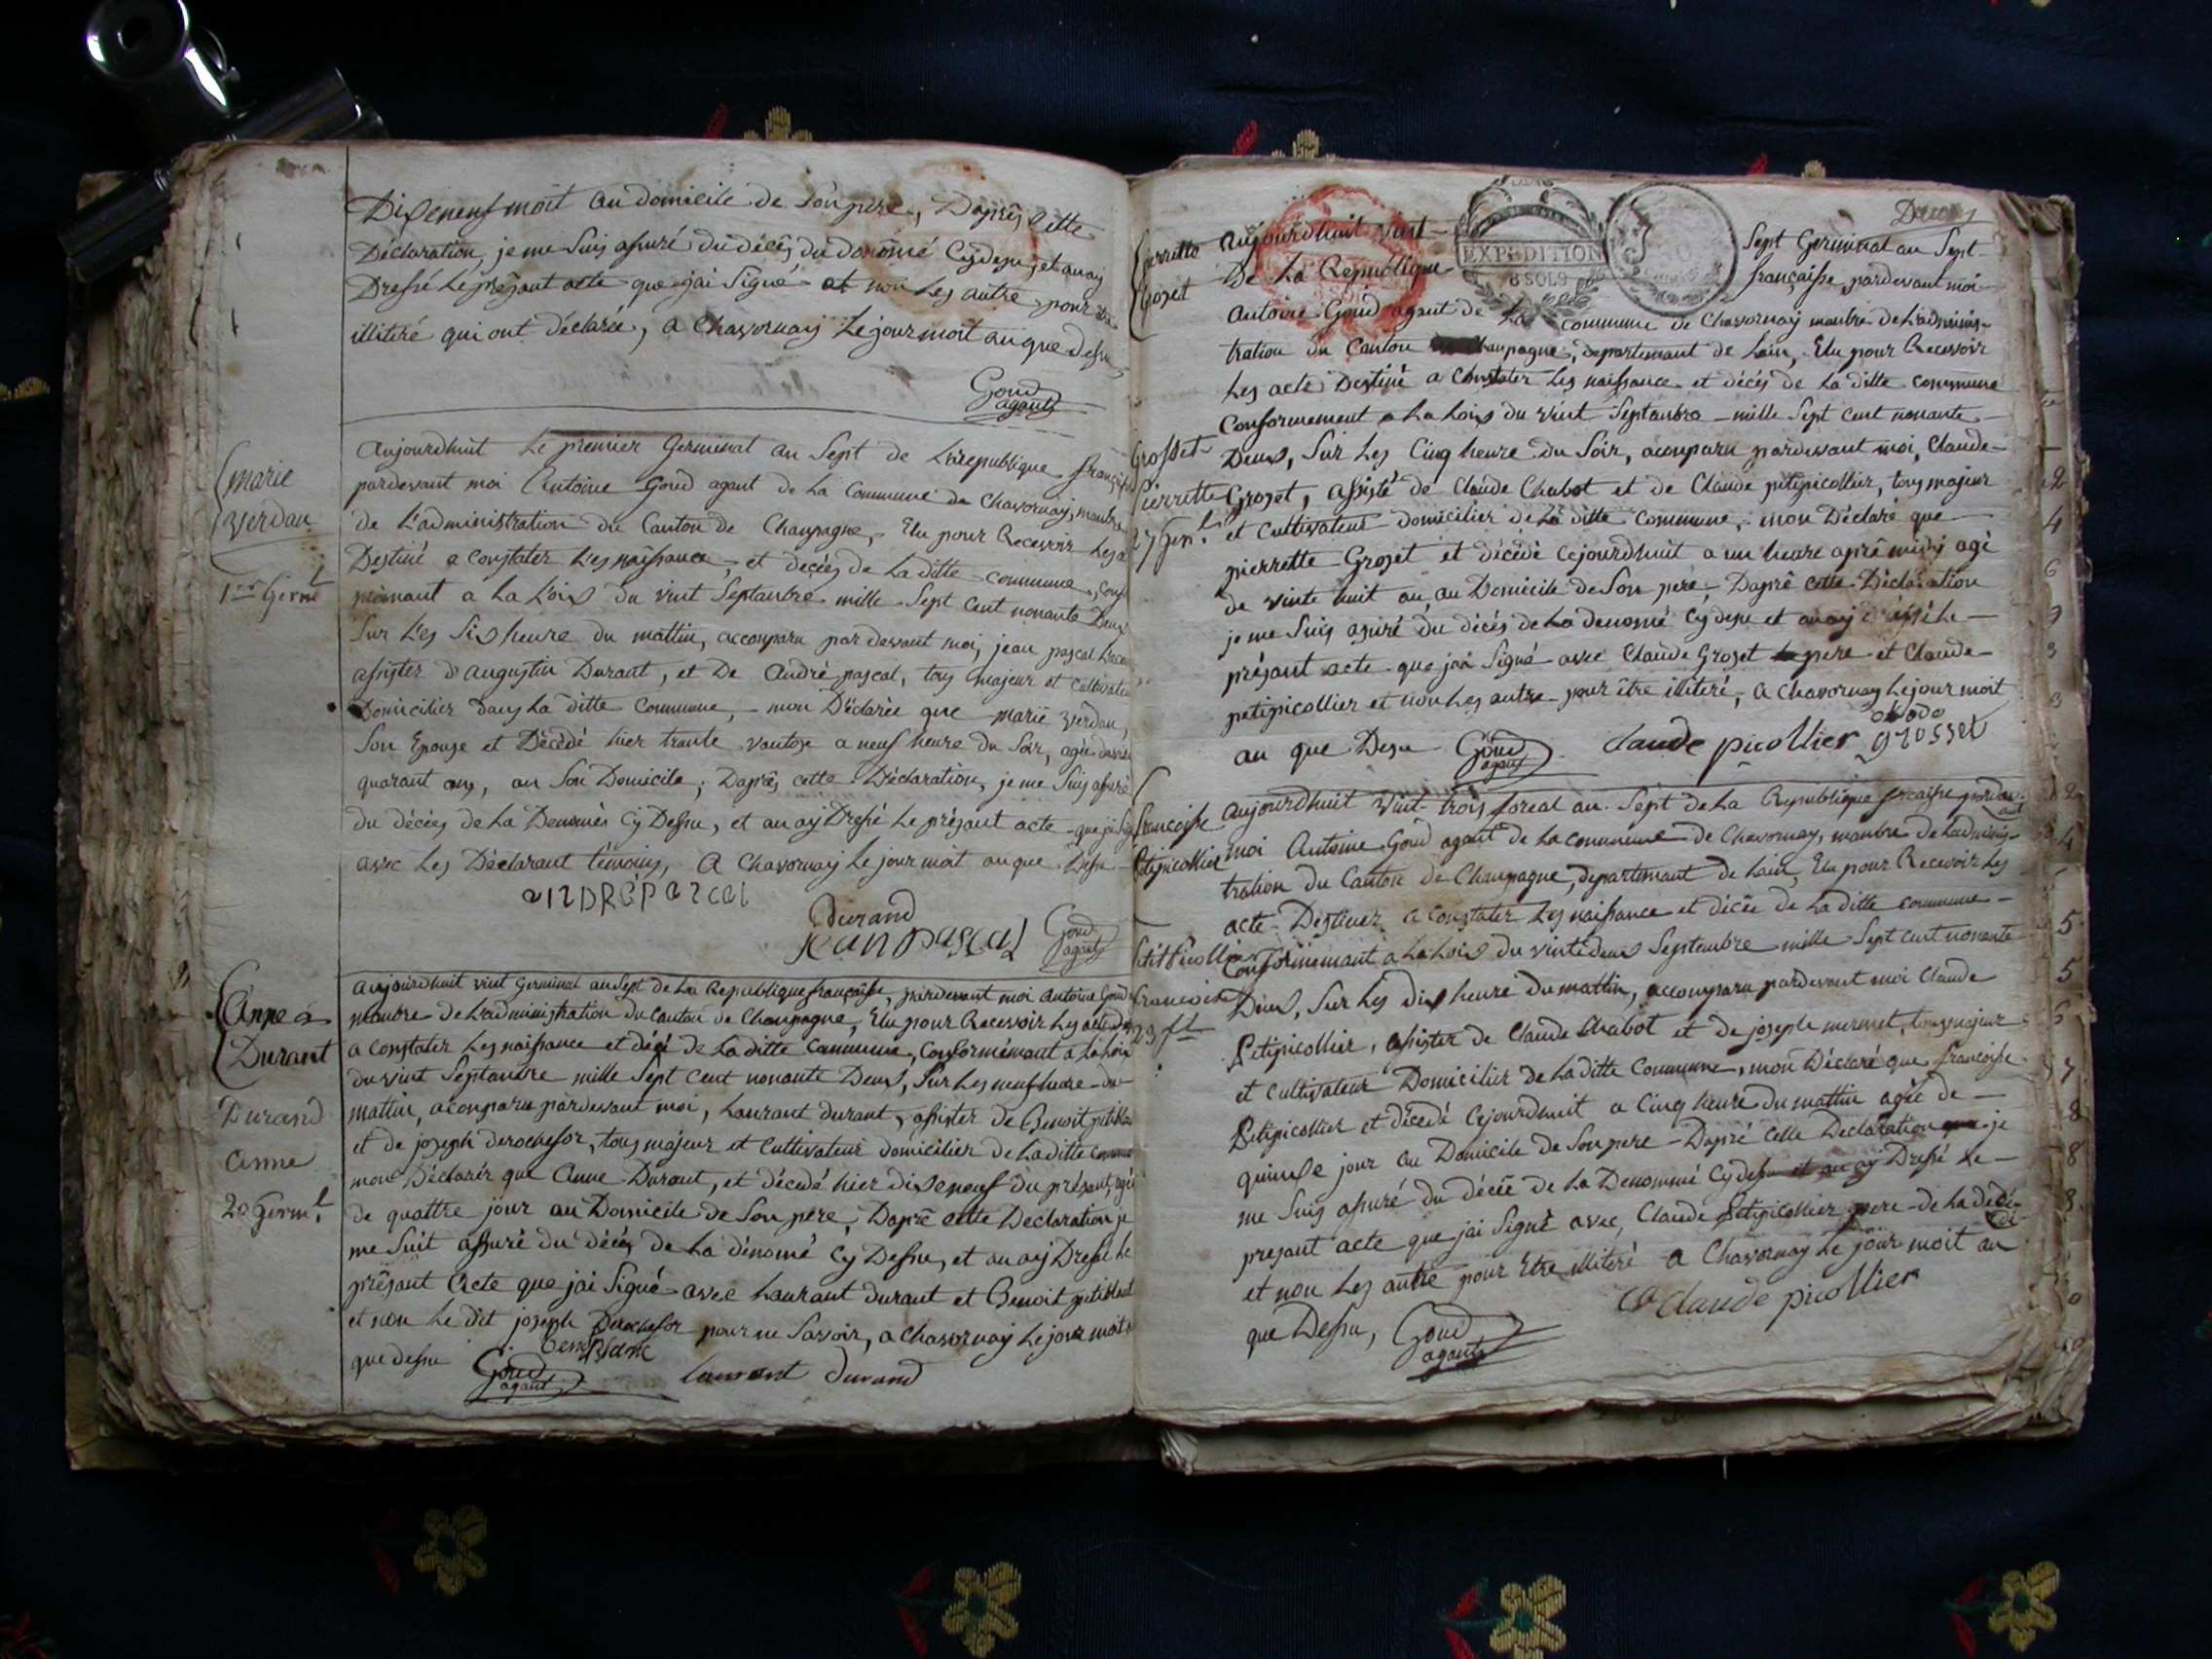 Dixeneuf moit au domicile de Son pere, Daprês Cette
Déclaration, je me Suis assuré du décês du donômé Cÿdesu, et an aÿ
Dressé Le présant acte que jai Signé et non Les autre pour être
illiteré qui ont déclarée, a Chavornaÿ Le jour moit an que dessu
Goud
agant
marie
verdau
1er Germl
Aujourdhuit Le premier Germinal an Sept de La republique française
pardevant moi Antoine Goud agant de La Commune de Chavornaÿ, manbre
de L'administration du Canton de Champagne, Elu pour Recevoir Les a
Destiné a Constater Les naissance, et decées de La ditte commune, Conf
mémant a La Loix du vint Septanbre mille Sept Cent nonante Deux
Sur Les Six heure du mattin, acconparu par devant moi, jean pascal
assister d'augustin Durant, et De andré pascal, tous majeur et Cultivateur
Domicilier dans La ditte Commune, mon Déclarée que marie verdau,
Son Epouse et Décédé hier trante vantose a neuf heure du Soir, agée
quarant ans, au Son Domicile, Daprês cette Déclaration, je me Suis assuré
du décées de La Denomés Cÿ Dessu, et an aÿ Dressé Le présant acte que jai Sig
avec Les Déclarant témoins, A Chavornaÿ Le jour moit an que Dessu
andré pascal
Durand
jean pascal
Goud
agant
Anne
Durant
Durand
anne
20 Germl
aujourdhuit vint Germinal an Sept de La Republique française, pardevant moi Antoine Goud
manbre de Ladministration du Canton de Champagne, Elu pour Recevoir Les acte
a constater Les naissance et décé de La ditte Commune, Conformémant a La Loix
du vint Septanbre mille Sept Cent nonante Deux, Sur Les neuf heure du
mattin, aconparu pardevant moi, Laurant durant, assister de Benoit
et de joseph derochefor, tous majeur et Cultivateur domicilier de La ditte Commune
mon Déclarér que Anne Durant, et décedé hier dixeneuf du présant, agée
de quattre jour au Domicile de Son pere, Daprê cette Declaration je
me Suit assuré du décés de La dénomé Cÿ Dessu, et an aÿ Dressé Le
présant Acte que jai Signé avec Laurant durant et Benoit petitblant
et non Le dit joseph Derochefor pour ne Savoir, a Chavornaÿ Le jour moit
que dessu
Goud
agant
Laurent durand
Décés
pierrette
Grozet
Grosset
Pierrette
27 Germl
Aujourdhuit vint Sept Germinal an Sept
De La Republique française, pardevant moi
EXPEDITION
8 SOLS
Antoine Goud agant de La commune de Chavornaÿ manbre de Ladminis-
tration du Canton Champagne, departemant de Lain, Elu pour Recevoir
Les acte Destiné a Constater Les naissance et décés de La ditte commune
Conformement a La Loix du vint Septanbre mille Sept Cent nonante
Deux, Sur Les Cinq heure du Soir, aconparu pardevant moi, Claude
Grozet, assisté de Claude Chabot et de Claude petipicollier, tous majeur
et Cultivateur domicilier de La ditte Commune, mon Déclaré que
pierrette Grozet et décédé cejourdhuit a un heure aprê midÿ agé
de vinte huit an, au Domicile de Son pere, Daprê cette Déclaration
je me Suis asuré du décés de La denomé Cÿ desu et an aÿ dréssé Le
présant acte que jai Signé avec Claude Grozet pere et Claude
petipicollier et non Les autre pour être illiteré, a Chavornaÿ Le jour moit
au que Desu Goud
agant
claude picollier
grosset
francoisse
Petipicollier
Petit Picollier
francoise
23 fl
Aujourdhuit vint trois floreal an Sept de La Republique francaise pardevant
moi Antoine Goud agant de La commune de Chavornaÿ, manbre de Ladminis-
tration du Canton de Champagne, departemant de Lain, Elu pour Recevoir Les
acte Destiner a Constater Les naissance et décée de La ditte commune
Conformémant a La Loix du vintedeux Septembre mille Sept Cent nonante
Deux, Sur Les dix heure du mattin, acconparu pardevant moi Claude
Petipicollier, assister de Claude Chabot et de joseph mermet, tous majeur
et cultivateur Domicilier de La ditte Commune, mon Déclaré que francoisse
Petipicollier et décedé Cejourdhuit a Cinq heure du mattin agée de
quinse jour au Domicile de Son pere Daprê Cette Declaration je
me Suis assuré du décée de La Denommé Cÿ dessu et an aÿ Dressé Le
presant acte que jai Signé avec, Claude Petipicollier pere de La
et non Les autre pour Etre illiteré a Chavornaÿ Le jour moit au
que Dessu, Goud
agant
Claude picollier